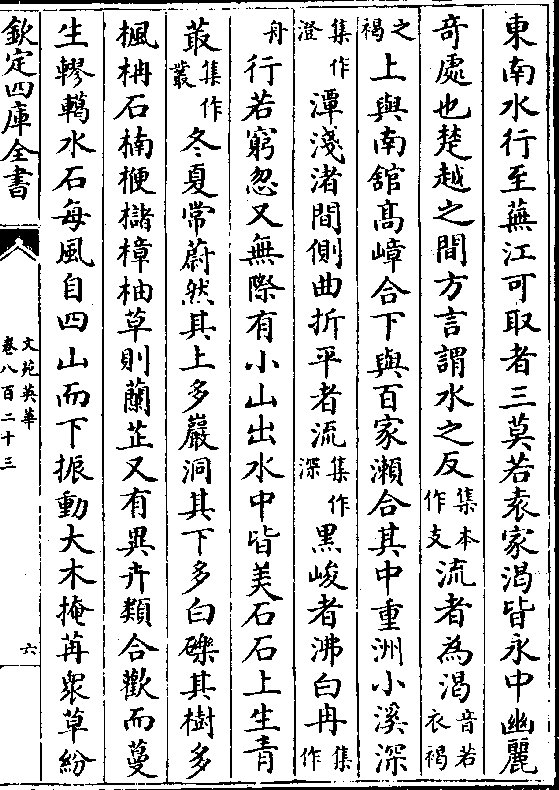 東南水行至蕪江可取者三莫若袁家渴皆永中幽麗
奇處也楚越之間方言謂水之反集本作支流者為渴音若衣褐
之褐上與南舘髙嶂合下與百家瀨合其中重洲小溪深
集作澄潭淺渚間側曲折平者流集作深黒峻者沸白冉集作
舟行若窮忽又無際有小山出水中皆美石石上生青
叢集作叢冬夏常蔚然其上多巖洞其下多白礫其樹多
楓柟石楠楩櫧樟柚草則蘭芷又有異卉類合歡而蔓
生轇轕水石每風自四山而下振動大木掩苒衆草紛
欽定四庫全書
文苑英華
卷八百二十三
六